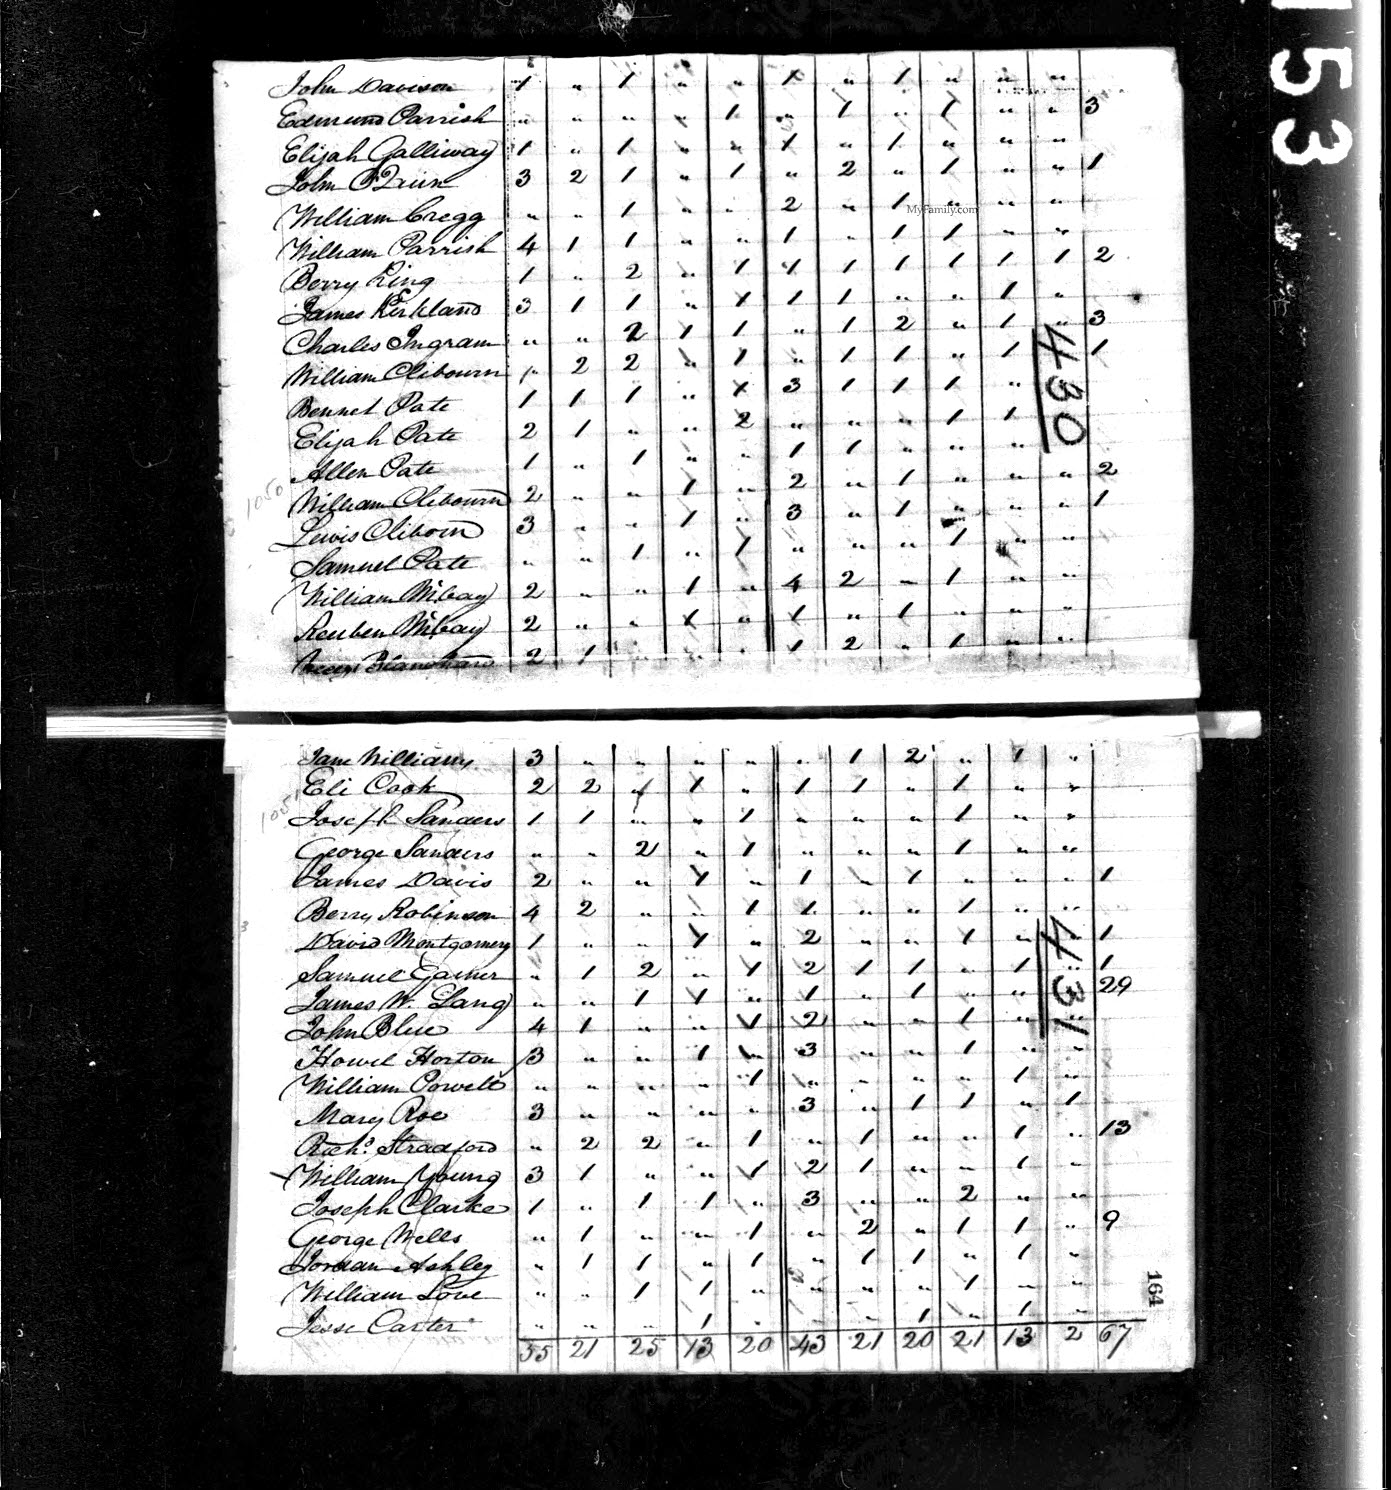 153
John Davison 1 " 1 " " 1 " 1 " " "
Edmund Parrish " " " " 1 " 1 " 1 " " 3
Elijah Galliway 1 " 1 " " 1 " 1 " " "
John O Quin 3 2 1 " 1 " 2 " 1 " " 1
William Cregg " " 1 " " 2 " 1 " " "
MyFamily.com
William Parrish 4 1 1 " " 1 " 1 1 " "
Berry King 1 " 2 " 1 1 1 1 1 1 1 2
James Kirkland 3 1 1 " 1 1 1 " " 1 "
Charles Ingram " " 2 1 1 " 1 2 " 1 " 3
William Clibourn " 2 2 " 1 " 1 1 " 1 1
430
Bennet Pate 1 1 1 " 1 3 1 1 1 "
Elijah Pate 2 1 " " 2 " " " 1 1
Allen Pate 1 " 1 " " 1 1 " " "
1050
William Clibourn 2 " " 1 " 2 " 1 " " " 2
Lewis Cliborn 3 " " 1 " 3 " 1 " " " 1
Samuel Pate " " 1 " 1 " " " 1 "
William McCay 2 " " 1 " 4 2 " 1 " "
Reuben McCay 2 " " 1 " 1 " 1 " " "
2 1 " " " 1 2 " 1 " "
Jane Williams 3 " " " " " 1 2 " 1 "
Eli Cook 2 2 " 1 " 1 1 " 1 " "
1051
Joseph Sanders 1 1 " " 1 " " " 1 " "
George Sanders " " 2 " 1 " " " 1 " "
James Davis 2 " " 1 " 1 " 1 " " " 1
Berry Robinson 4 2 " " 1 1 " " 1 " "
David Montgomery 1 " " 1 " 2 " " 1 " 1
431
Samuel Gainer " 1 2 " 1 2 1 1 " 1 " 1
James W. Lang " " 1 1 " 1 " 1 " " 29
John Blue 4 1 " " 1 2 " " 1 " "
Howel Horton 3 " " 1 " 3 " " 1 " "
William Powell " " " " 1 " " " " 1 "
Mary Roe 3 " " " " 3 " 1 1 " 1
Richd. Stradford " 2 2 " 1 " 1 " " 1 " 13
William Young 3 1 " " 1 2 1 " " 1 "
Joseph Clarke 1 " 1 1 " 3 " " 2 " "
George Wells " 1 " " 1 " 2 " 1 1 " 9
Jordan Ashley " 1 1 " 1 " 1 1 " 1 "
William Love " " 1 1 " " " " 1 " "
164
Jesse Carter " " " 1 " " " 1 " 1 "
55 21 25 13 20 43 21 20 21 13 2 67